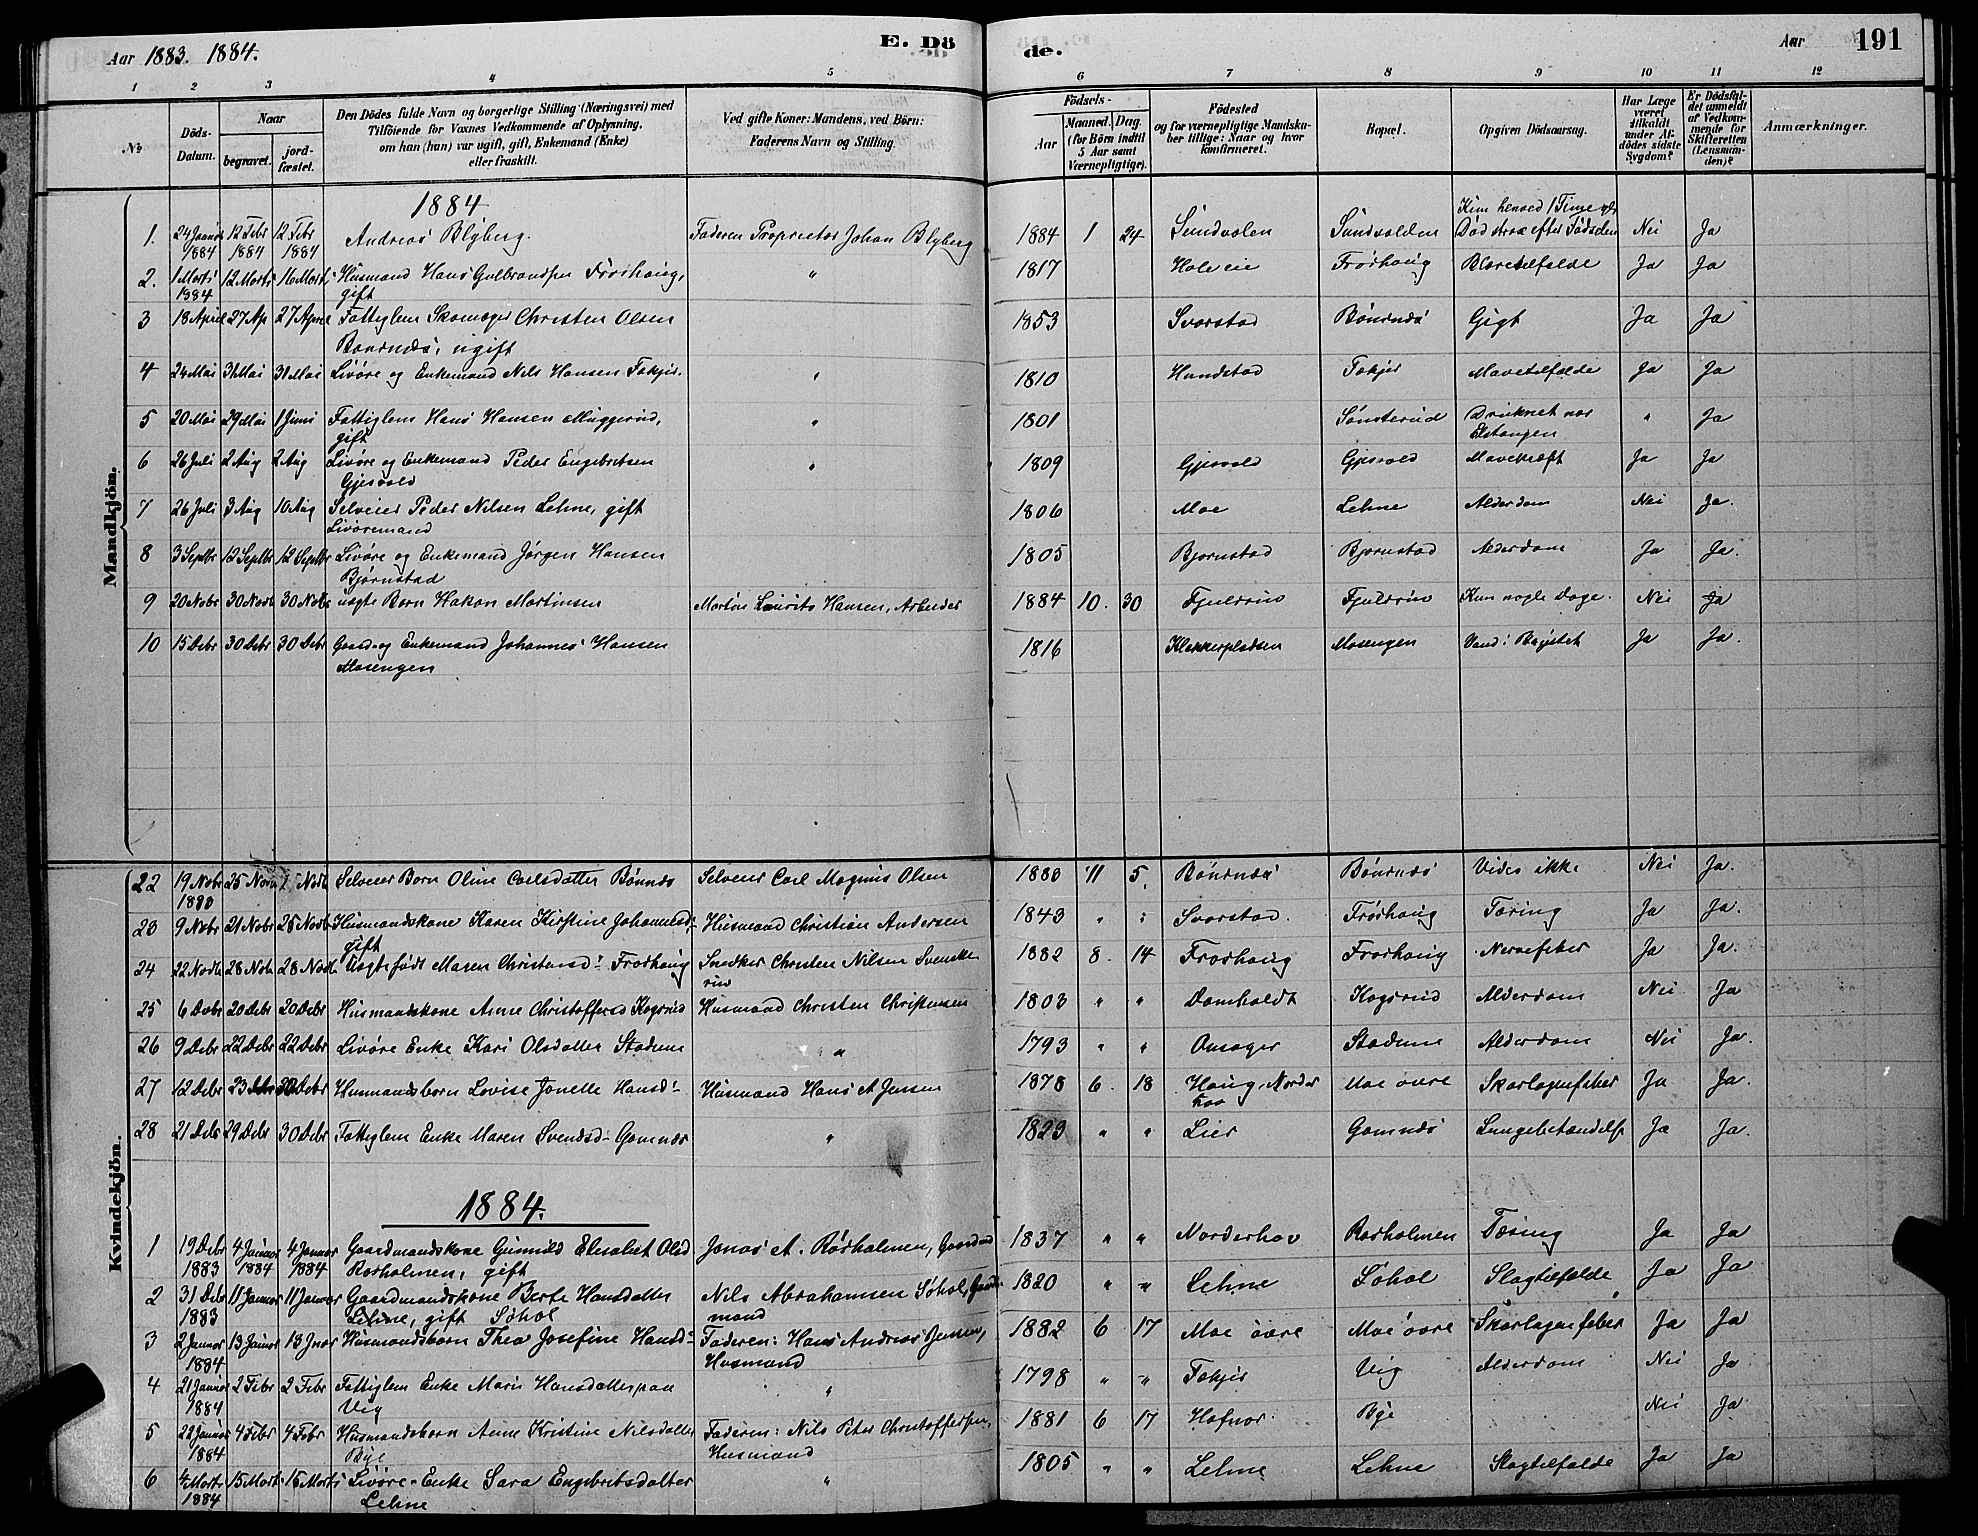 Aar 1883. 1884.
E. Dö
de.
Aar 191
1 2 3 4 5 6 7 8 9 10 11 12
No
Döds-
Datum.
Naar
begravet.
jord-
fæstet.
Den Dödes fulde Navn og borgerlige Stilling (Næringsvei) med
Tilföiende for Voxnes Vedkommende af Oplysning,
om han (hun) var ugift, gift, Enkemand (Enke)
eller fraskilt.
Ved gifte Koner: Mandens, ved Börn:
Faderens Navn og Stilling.
Födsels-
Aar
Maaned. Dag.
(for Börn indtil
5 Aar samt
Værnepligtige).
Födested
og for værnepligtige Mandska-
ber tillige: Naar og hvor
konfirmeret.
Bopæl.
Opgiven Dödsaarsag.
Har Læge
været
tilkaldt
under Af-
dödes sidste
Sygdom?
Er Dödsfal-
det anmeldt
af Vedkom-
mende for
Skifteretten
(Lensman-
den)?
Anmærkninger.
Mandkjön.
1884
1. 24 Januar 12 Febr 12 Febr Andreas Blyberg. Faderen Proprietær Johan Blyberg 1884 1 24 Sundvolen Sundvolden Død strax efter Fødselen Nei Ja
1884 1884 1884
2. 1 Marts 12 Marts 16 Marts Husmand Hans Gulbrandsen Frorhaug, " 1817 Hole eie Frorhaug Ja Ja
1884 gift
3 18 April 27 Ap 27 April Fattiglem Skomager Christen Olsen 1853 Svarstad Bønsnæs Gigt Ja Ja
Bonsnæs, ugift
4 24 Mai 31 Mai 31 Mai Livøre og Enkemand Nils Hansen Fekjer. " 1810 Hundstad Fekjer Mavetilfælde Ja Ja
5 20 Mai 29 Mai 1 Juni Fattiglem Hans Hansen Muggerud, " 1801 Sønsterud Druknet ved " Ja
gift Elstangen
6 26 Juli 2 Aug 2 Aug Livøre og Enkemand Peder Engebretsen " 1809 Gjesvold Gjesvold Mavekræft Ja Ja
Gjesvold
7 26 Juli 3 Aug 10 Aug Selveier Peder Nilsen Lehne, gift 1806 Moe Lehne Alderdom Nei Ja.
Livøremand
8 3 Septbr 12 Septbr 12 Septbr Livøre og Enkemand Jørgen Hansen 1805 Bjornstad Bjornstad Alderdom Ja Ja.
Bjørnstad
9 20 Nobr 30 Novb 30 Nobr uægte Barn Hakon Martinsen Martin Laurits Hansen, Arbeider 1884 10. 30 Fjeldrud Fjeldrud Kun nogle Dage. Nei Ja
10 15 Debr 30 Debr 30 Debr Gaard. og Enkemand Johannes Hansen 1816 Klokkerpladsen Mosengen Vand i Brystet Ja Ja.
Mosengen
Kvindekjön.
22 19 Nobr 25 Novb Novb Selveier Barn Oline Carlsdatter Bønsnæs Selveier Carl Magnus Olsen 1883 11 5. Bønsnæs Bønsnæs Vides ikke Nei Ja.
1883
23 9 Nobr 21 Nobr 25 Novb Husmandskone Karen Kirstine Johannesd. Husmand Christian Andersen 1843 " " Svarstad. Frørhaug Tæring Ja Ja.
gift
24 22 Novb 28 Nob 28 Novb Uægtefødt Maren Christensd. Frorhaug Snedker Christen Nilsen Svenske- 1882 8. 14 Frorhaug Frorhaug Nervefeber Ja Ja.
rud
25 6 Debr 20 Debr 20 Debr Husmandskone Anne Christoffersd Kogsrud Husmand Christen Christensen 1803 " " Domholdt Kogsrud Alderdom Nei Ja
26 9 Debr 22 Debr 22 Debr Livøre Enke Kari Olsdatter Stadum " 1793 " " Onsager Stadum Alderdom Nei Ja.
27 12 Debr 23 Debr Debr Husmandsbarn Lovise Jonette Hansd. Husmand Hans A Jensen 1878 6. 18 Haug, Norder- Moe øvre Skarlagnsfeber Ja Ja.
hov
28 21 Debr 29 Debr 30 Debr Fattiglem Enke Maren Svendsd. Gomnæs " 1823 " " Lier Gomnæs Lungebetændelse Ja Ja.
1884.
1 19 Debr 4 Januar 4 Januar Gaardmandskone Gunnild Elisabet Olsd Jonas A. Rørholmen, Gaardmd 1837 " " Norderhov Rørholmen Tæring Ja Ja
1883 1884 1884 Rørholmen, gift
2 31 Debr 11 Januar 11 Januar Gaardmandskone Berte Hansdatter Nils Abrahamsen Søhol, Gaard- 1820 " " Lehne Søhol Slagtilfælde Ja Ja
1883 Lehne, gift Søhol mand
3 2 Januar 13 Januar 13 Januar Husmandsbarn Thea Josefine Hansd. Faderen: Hans Andreas Jensen, 1882 6 17 Moe øvre Moe øvre Skarlagnsfeber Ja Ja
1884 Husmand
4 21 Januar 2 Febr 2 Febr Fattiglem Enke Mari Hansdatter paa " 1798 " " Fekjer Vig Alderdom Nei Ja
1884 Vig
5 22 Januar 4 Febr 4 Febr Husmandsbarn Anne Kristine Nilsdatter Faderen: Nils Peter Christoffersen, 1881 6 17 Hafnor Bye Nei Ja
1884 Bye Husmand
6 4 Marts 15 Marts 16 Marts Livøre-Enke Sara Engebretsdatter " 1805 " " Lehne Lehne Slagtilfælde Ja Ja
1884 Lehne